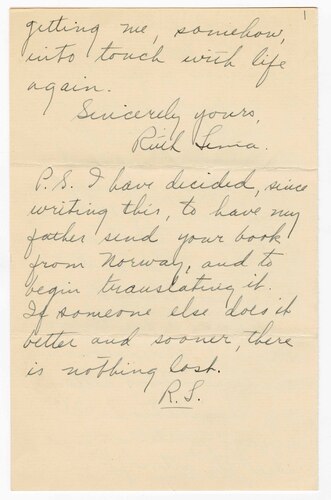 1
getting me, somehow,
into touch with life
again.
Sincerely yours,
Ruth Lima.
P.S. I have decided, since
writing this, to have my
father send your book
from Norway, and to
begin translating it.
If someone else does it
better and sooner, there
is nothing lost.
R.S.